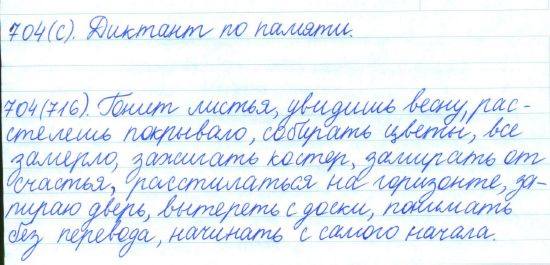 704(с). Диктант по памяти.
704(716). Гонит листья, увидишь весну, рас-
стелешь покрывало, собирать цветы, все
замерло, зажигать костер, замирать от
счастья, расстилаться на горизонте, за-
пираю дверь, вытереть с доски, понимать
без перевода, начинать с самого начала.